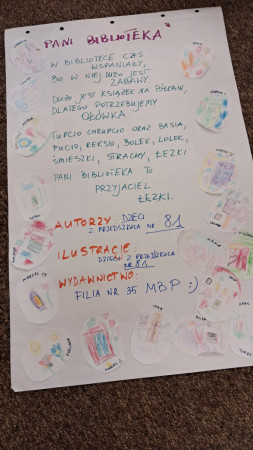 "PANI BIBLIOTEKA"
W BIBLIOTECE CZAS
WSPANIAŁY,
BO W NIEJ DUŻO JEST
ZABAWY
DUŻO JEST KSIĄŻEK NA PÓŁKACH,
DLATEGO POTRZEBUJEMY
OŁÓWKA
TUPCIO CHRUPCIO ORAZ BASIA,
PUCIO, REKSIO, BOLEK, LOLEK,
ŚMIESZKI, STRACHY, ŁEZKI
PANI BIBLIOTEKA TO
PRZYJACIEL
ŁEZKI.
AUTORZY: DZIECI
Z PRZEDSZKOLA NR 81
ILUSTRACJE:
DZIECI Z PRZEDSZKOLA
NR 81
WYDAWNICTWO:
FILIA NR 35 MBP :)